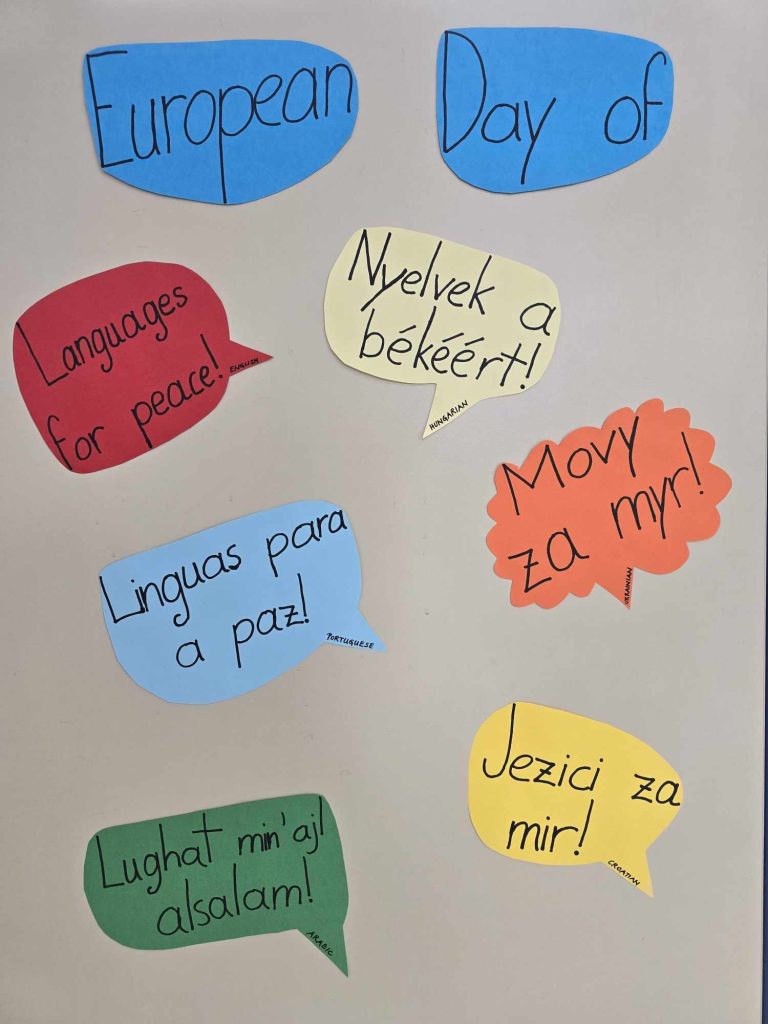 European
Day of
Languages
for peace!
ENGLISH
Nyelvek a
békéért!
HUNGARIAN
Movy
za myr!
UKRAINIAN
Linguas para
a paz!
PORTUGUESE
Jezici za
mir!
CROATIAN
Lughat min'ajl
alsalam!
ARABIC